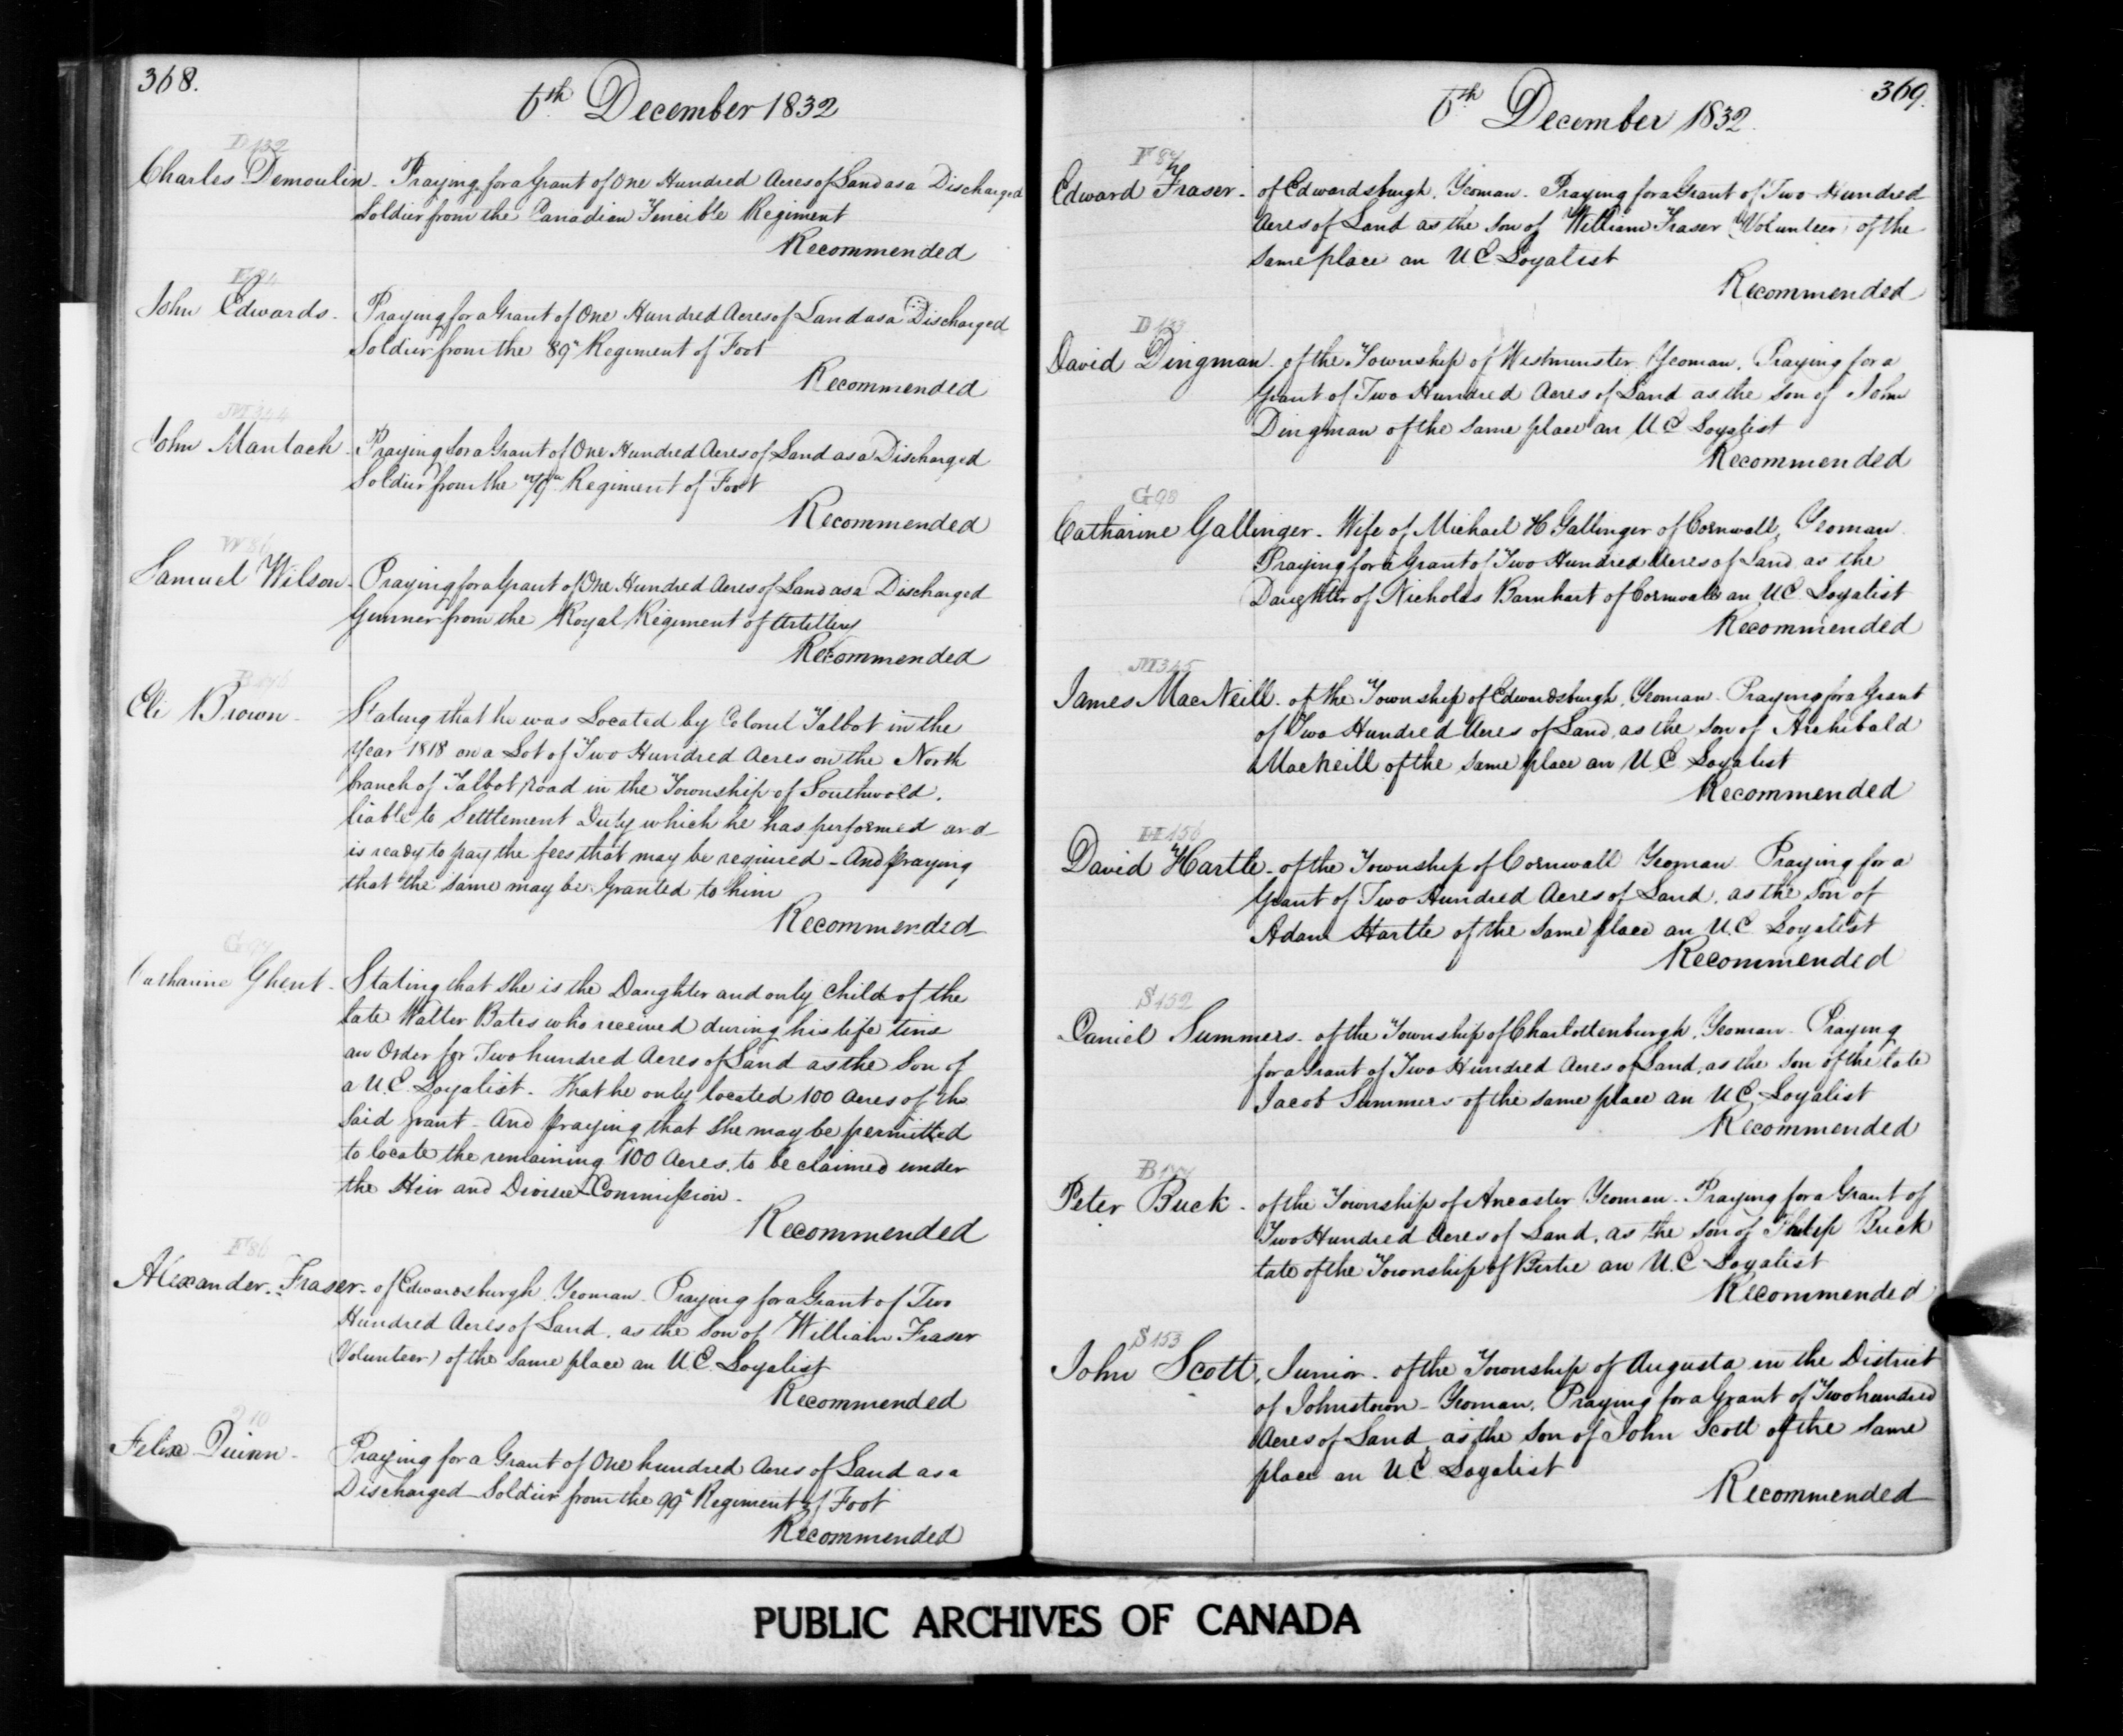 368.
6th December 1832
D 132
Charles Demoulin - Praying for a Grant of One Hundred Acres of Land as a Discharged
Soldier from the Canadian Fencible Regiment
Recommended
John Edwards - Praying for a Grant of One Hundred Acres of Land as a Discharged
Soldier from the 89th Regiment of Foot
Recommended
M 344
John Manlach - Praying for a Grant of One Hundred Acres of Land as a Discharged
Soldier from the Regiment of Foot
Recommended
W 86
Samuel Wilson - Praying for a Grant of One Hundred Acres of Land as a Discharged
Gunner from the Royal Regiment of Artillery
Recommended
Eli Brown - Stating that he was Located by Colonel Talbot in the
Year 1818 on a Lot of Two Hundred Acres on the North
branch of Talbot road in the Township of Southwold,
liable to Setttlement Duty which he has performed and
is ready to pay the fees that may be required - And praying
that the same may be Granted to him
Recommended
Catharine Ghent - Stating that she is the Daughter and only Child of the
late Walter Bates who received during his life time
an Order for Two hundred Acres of Land as the Son of
a U.E. Loyalist - That he only located 100 Acres of the
said grant - And praying that She may be permitted
to locate the remaining 100 Acres, to be claimed under
the Heir and Devisee Commission -
Recommended
F 86
Alexander Fraser - of Edwardsburgh Yeoman - Praying for a Grant of Two
Hundred Acres of Land, as the Son of William Fraser
(Volunteer) of the Same place an U.E. Loyalist
Recommended
Q 10
Felix Quinn - Praying for a Grant of One hundred Acres of Land as a
Discharged Soldier from the 99th Regiment of Foot
Recommended
369.
6th December 1832.
F 87
Edward Fraser - of Edwardsburgh, Yeoman - Praying for a Grant of Two Hundred
Acres of Land as the Son of William Fraser (Volunteer) of the
Same place an U E Loyalist
Recommended
D 133
David Dingman - of the Township of Westminster, Yeoman, Praying for a
Grant of Two Hundred Acres of Land as the Son of John
Dingman of the Same place an U E Loyalist
Recommended
G 98
Catharine Gallinger - Wife of Michael H Gallinger of Cornwall, Yeoman
Praying for a Grant of Two Hundred Acres of Land as the
Daughter of Nicholas Barnhart of Cornwall an U.E. Loyalist
Recommended
M 345
James MacNeill - of the Township of Edwardsburgh, Yeoman - Praying for a Grant
of Two Hundred Acres of Land, as the Son of Archibald
MacNeill of the Same place an U E Loyalist
Recommended
H 156
David Hartle - of the Township of Cornwall Yeoman Praying for a
Grant of Two Hundred Acres of Land, as the Son of
Adam Hartle of the Same place an U.E. Loyalist
Recommended
S 152
Daniel Summers - of the Township of Charlottenburgh, Yeoman - Praying
for a Grant of Two Hundred Acres of Land, as the Son of the late
Jacob Summers of the same place an U E Loyalist
Recommended
B 177
Peter Buck - of the Township of Ancaster Yeoman - Praying for a Grant of
Two Hundred Acres of Land, as the Son of Philip Buck
late of the Township of Bertie an U.E. Loyalist
Recommended
S 153
John Scott, Junior - of the Township of Augusta in the District
of Johnstown - Yeoman, Praying for a Grant of Two hundred
Acres of Land, as the Son of John Scott of the Same
place an U E Loyalist
Recommended
PUBLIC ARCHIVES OF CANADA